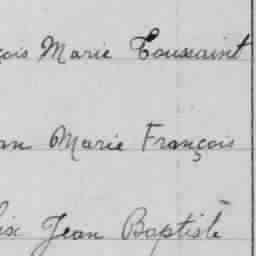 çois Marie Toussaint
an Marie François
ix Jean Baptiste